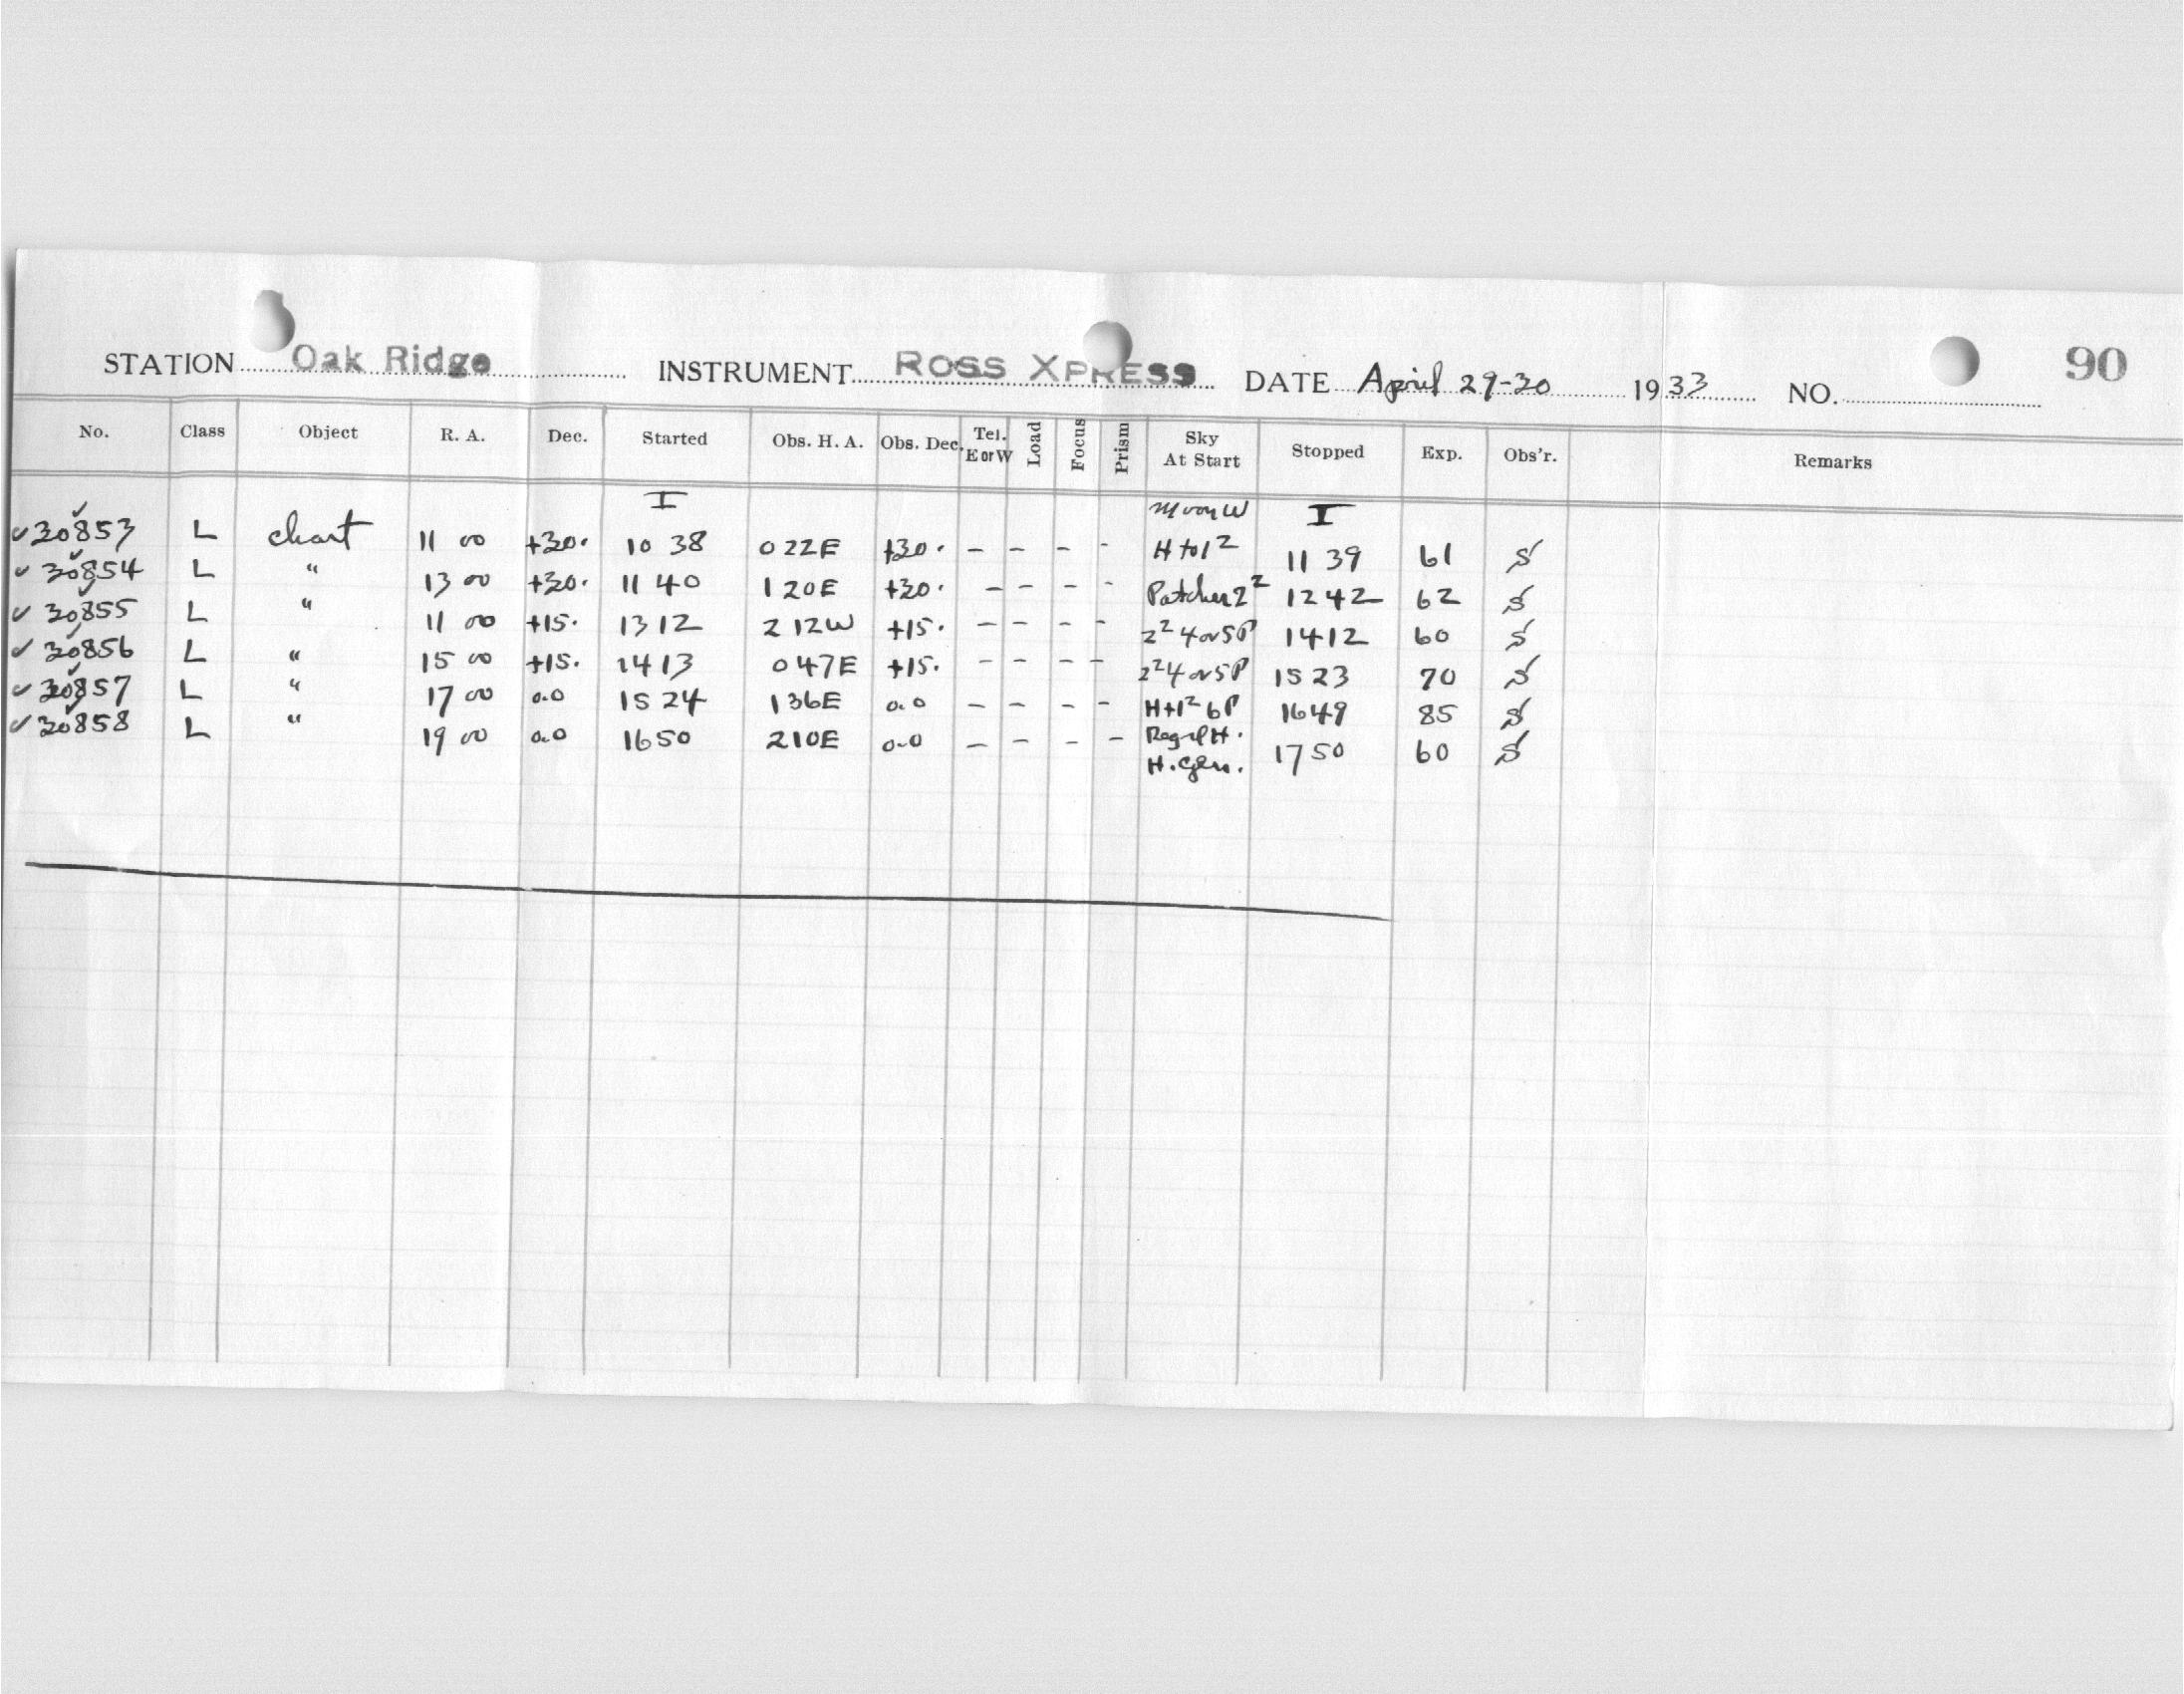 STATION Oak Ridge INSTRUMENT ROSS XPRESS DATE April 29-30 1933 NO. 90
No. Class Object R. A. Dec. Started Obs. H. A. Obs. Dec. Tel. E or W Load Focus Prism Sky At Start Stopped Exp. Obs'r. Remarks
I Moon W I
✓30853 L chart 11 00 +30. 10 38 0 22E +30. - - - - H to 1² 11 39 61 S
✓30854 L " 13 00 +30. 11 40 1 20E +30. - - - - Patches 2² 12 42 62 S
✓30855 L " 11 00 +15. 13 12 2 12W +15. - - - - 2² 4 or 5P 14 12 60 S
✓30856 L " 15 00 +15. 14 13 0 47E +15. - - - - 2² 4 or 5P 15 23 70 S
✓30857 L " 17 00 0.0 15 24 1 36E 0.0 - - - - H+1² 6P 16 49 85 S
✓30858 L " 19 00 0.0 16 50 2 10E 0.0 - - - - H. 17 50 60 S
H. Gen.